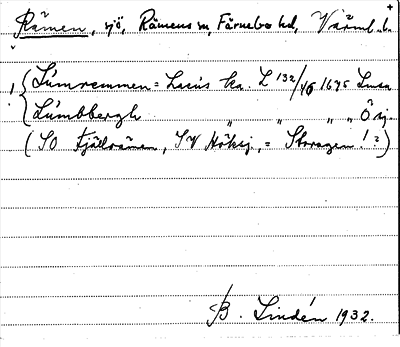 Rämen, sjö, Rämens sn, Färnebo hd, Värml.
Lúmremmen = Lacús ka. L 132/46 1645
Lúmbbergh " " " " Ö sj.
(SO Fjällrämen, SV Höksj. = Storagen!?)
B. Lindén 1932.